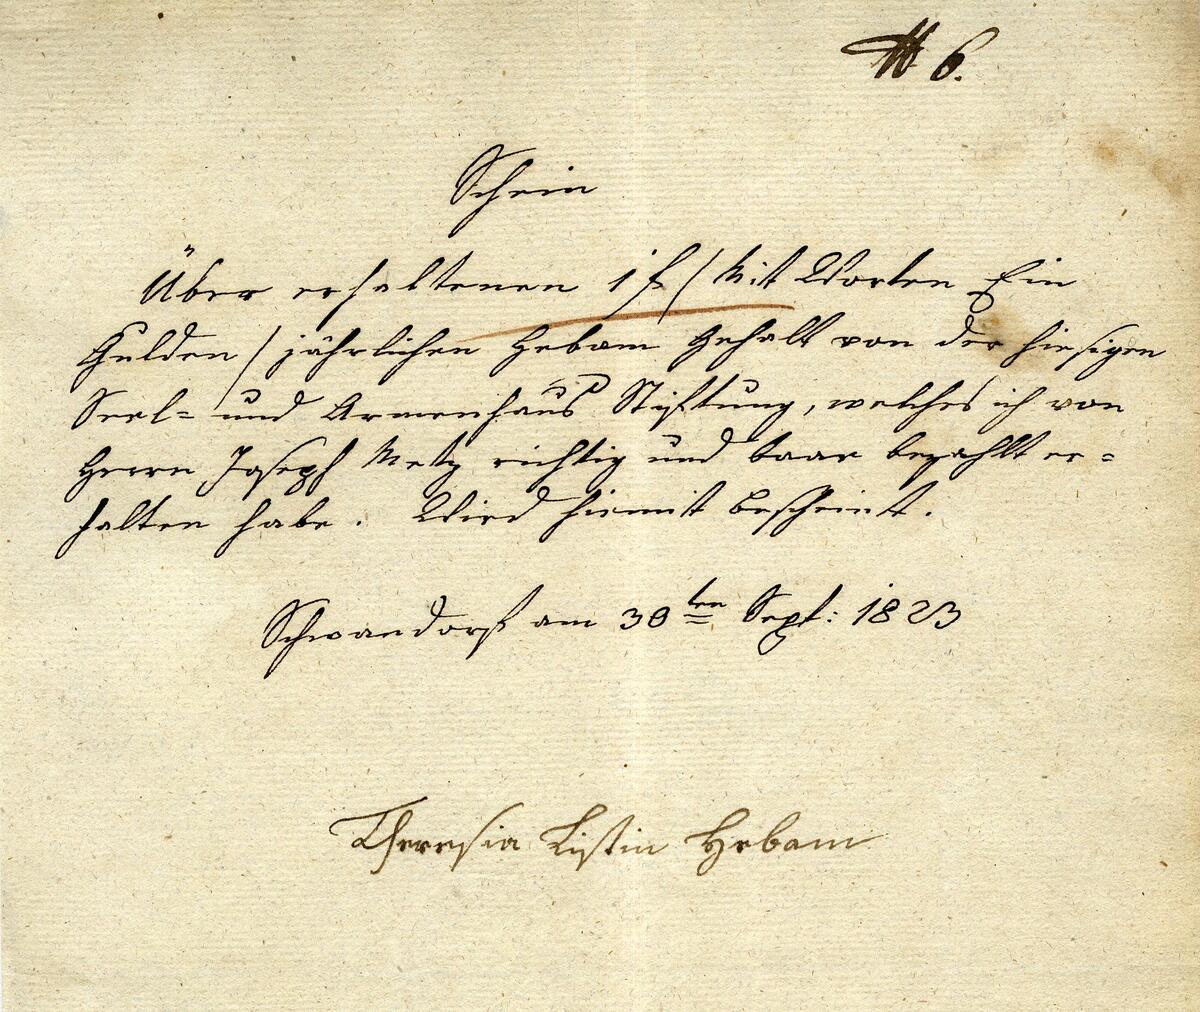 № 6.
Schein
Über erhaltenen 1 f / Mit Worten Ein
Gulden / jährlichen Hebam Gehalt von der hiesigen
Seel- und Armenhaus Stiftung, welches ich von
Herrn Joseph Metz richtig und baar bezahlt er-
halten habe. Wird hiemit bescheint.
Schwandorf am 30ten Sept: 1823
Theresia Listin Hebam